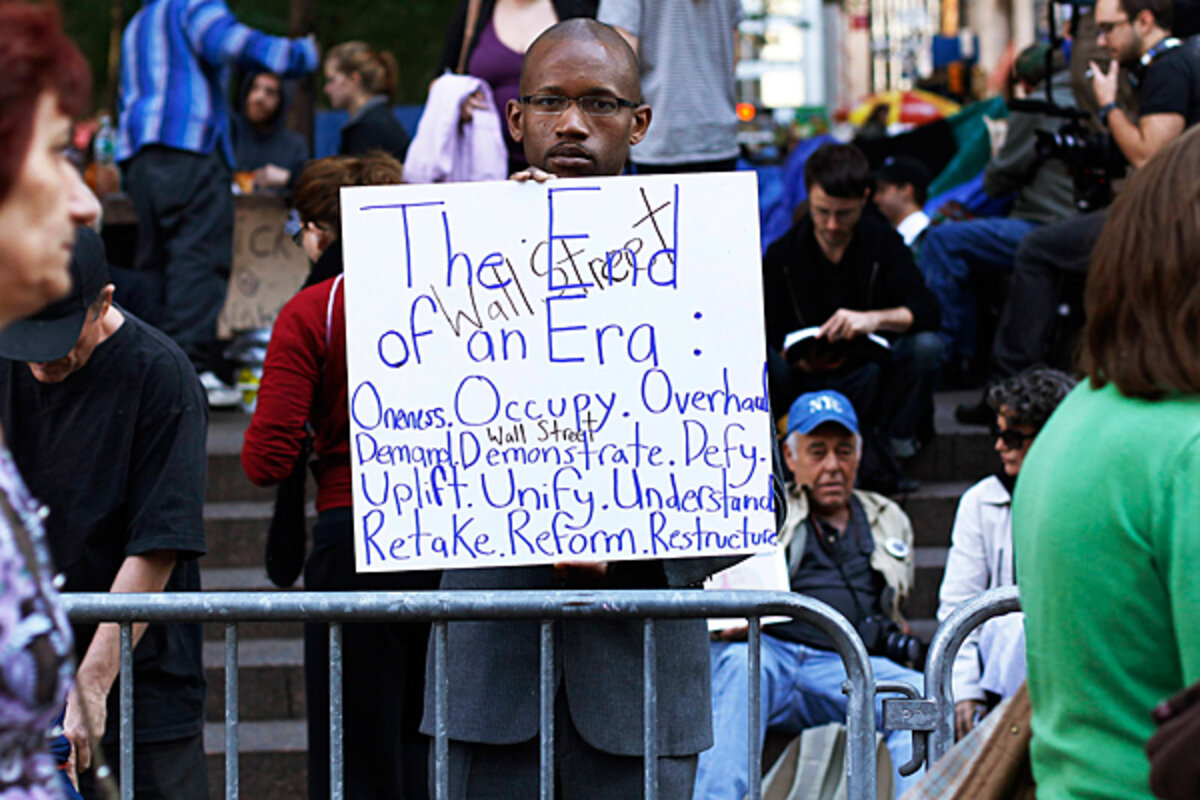 The End
Wall Street X
of an Era :
Oneness. Occupy. Overhaul
Wall Street
Demand. Demonstrate. Defy.
Uplift. Unify. Understand
Retake. Reform. Restructure